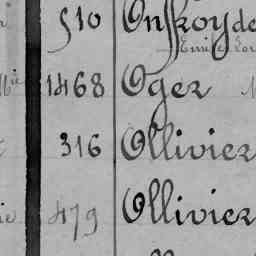 510 Onffroy de
1468 Oger
316 Ollivier
479 Ollivier